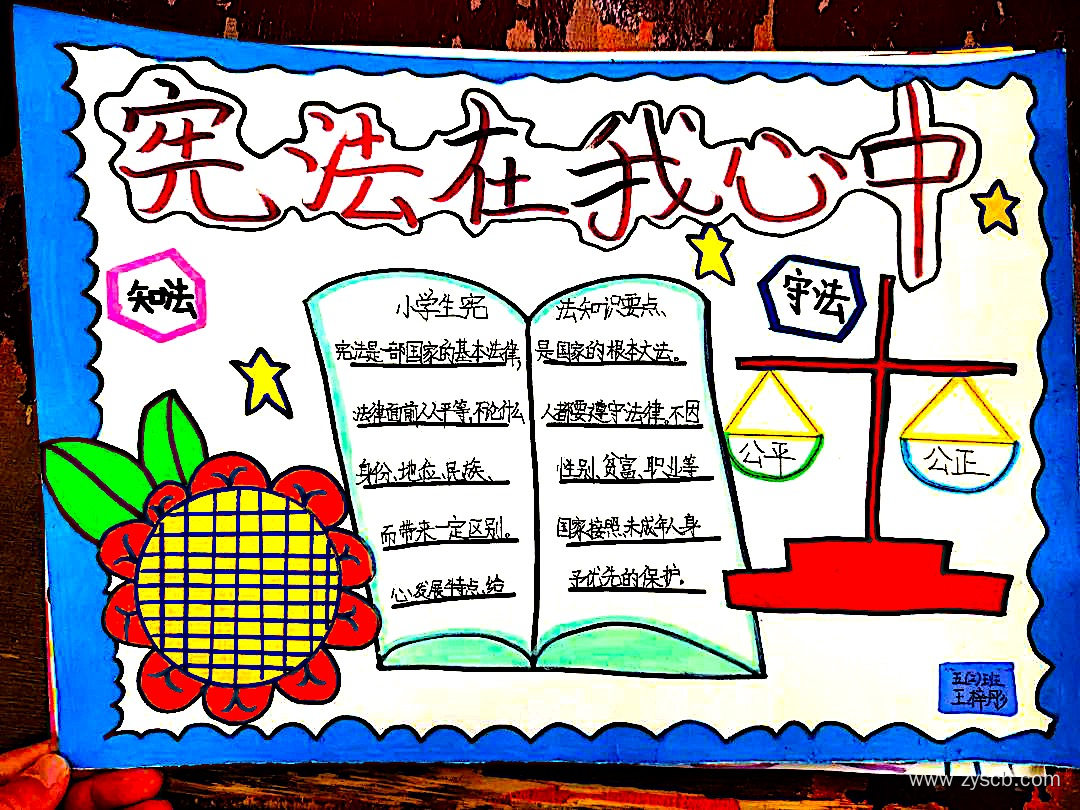 宪法在我心中
知法
守法
小学生宪法知识要点、
宪法是一部国家的基本法律,是国家的根本大法。
法律面前人人平等,不论什么人都要遵守法律。不因
身份、地位、民族、性别、贫富、职业等
而带来一定区别。国家按照未成年人身
心发展特点、给予优先的保护.
公平
公正
五(2)班
王梓彤
www.zyscb.com